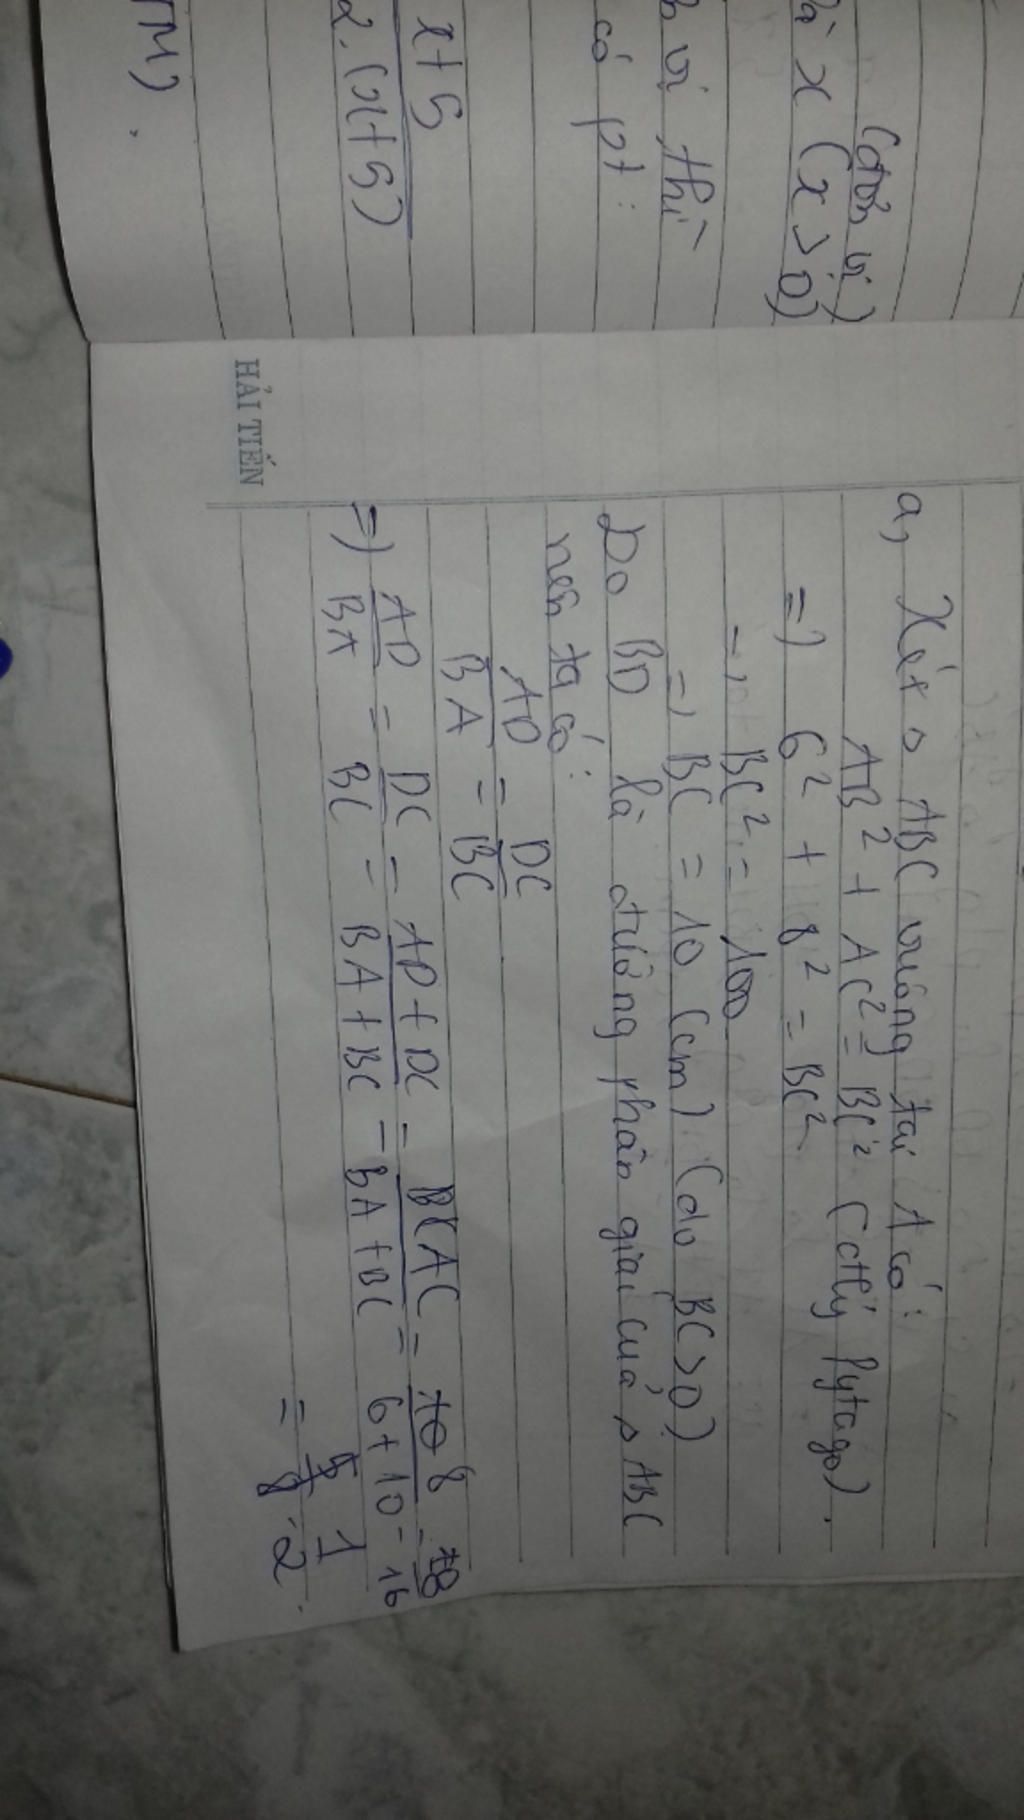 (đơn vị)
là x (x > 0)
vị thì
có pt :
x+5
2.(x+5)
TM) .
HẢI TIẾN
a, Xét Δ ABC vuông tại A có :
AB² + AC² = BC² (đlý Pytago) .
=) 6² + 8² = BC²
=) BC² = 100
=) BC = 10 (cm) (do BC > 0)
Do BD là đường phân giác của Δ ABC
nên ta có :
AD/BA = DC/BC
=) AD/BA = DC/BC = AD+DC/BA+BC = AC/BA+BC = 8/6+10 = 8/16
= 1/2 .